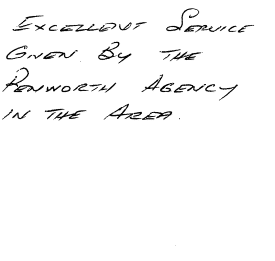 Excellent Service
Given By The
Penworth Agency
in the Area.